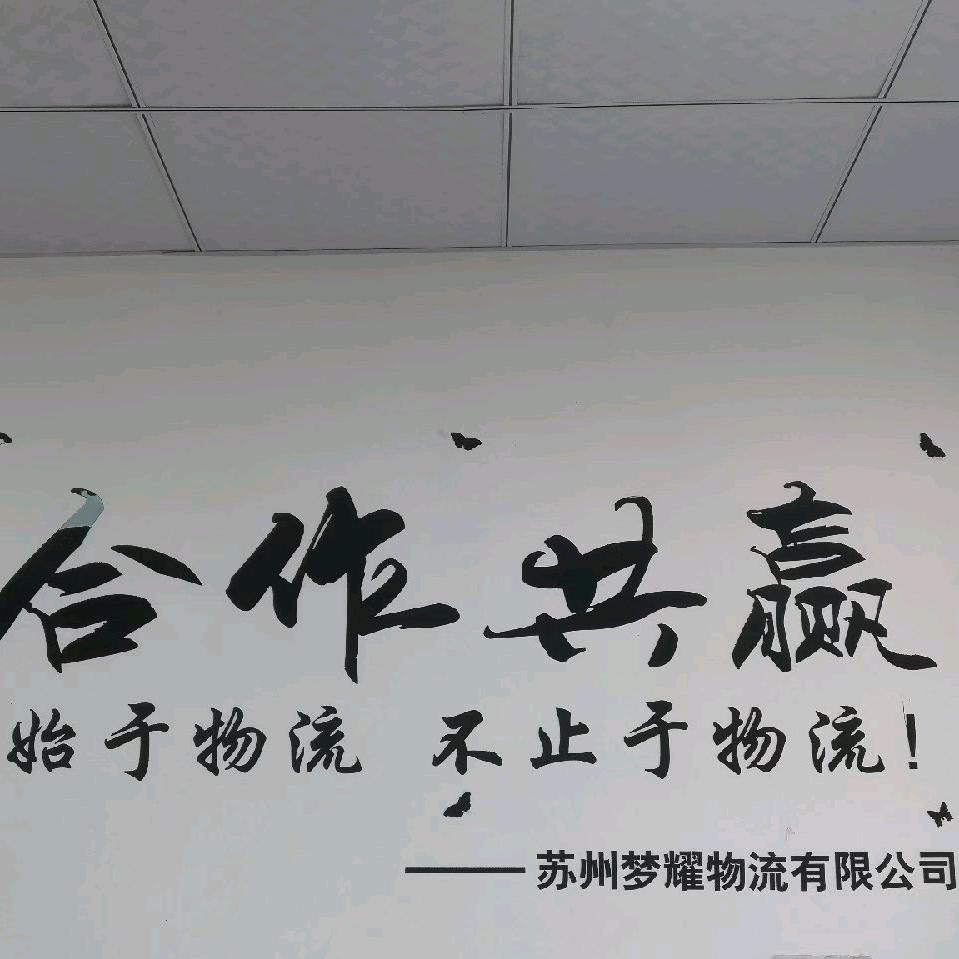 合作共赢
始于物流 不止于物流!
——苏州梦耀物流有限公司